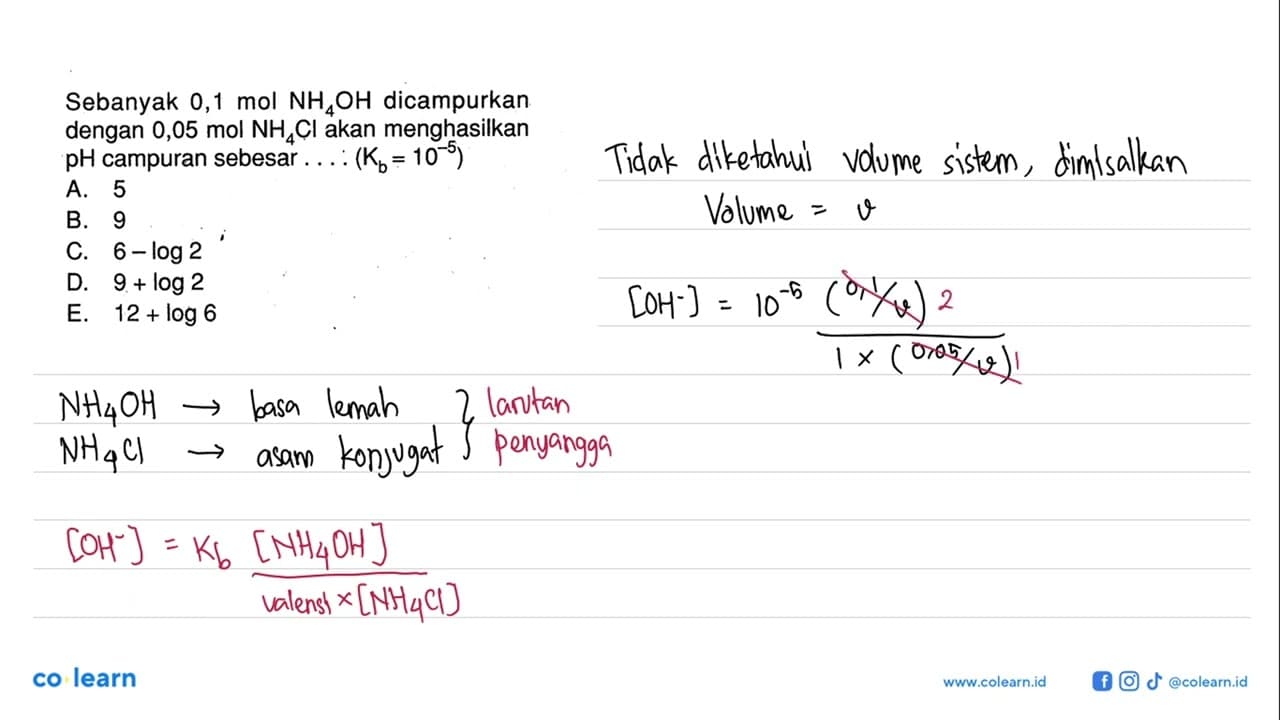 Sebanyak 0,1 mol NH₄OH dicampurkan
dengan 0,05 mol NH₄Cl akan menghasilkan
pH campuran sebesar . . . . (K_b = 10⁻⁵)
A. 5
B. 9
C. 6 – log 2
D. 9 + log 2
E. 12 + log 6
Tidak diketahui volume sistem, dimisalkan
Volume = v
[OH⁻] = 10⁻⁵ (0,1/v) 2
1 × (0,05/v) 1
NH₄OH → basa lemah } larutan
NH₄Cl → asam konjugat } penyangga
[OH⁻] = Kb [NH₄OH]
valensi × [NH₄Cl]
co learn
www.colearn.id
@colearn.id